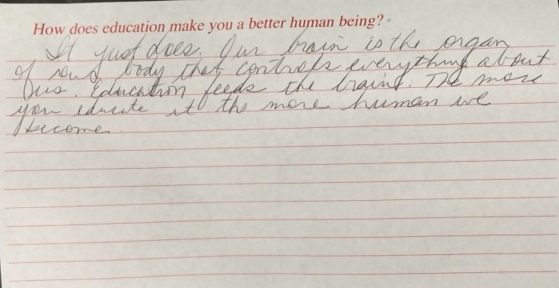 How does education make you a better human being?
It just does. Our brain is the organ
of our body that controls everything about
us. Education feeds the brain. The more
you educate it the more human we
become.